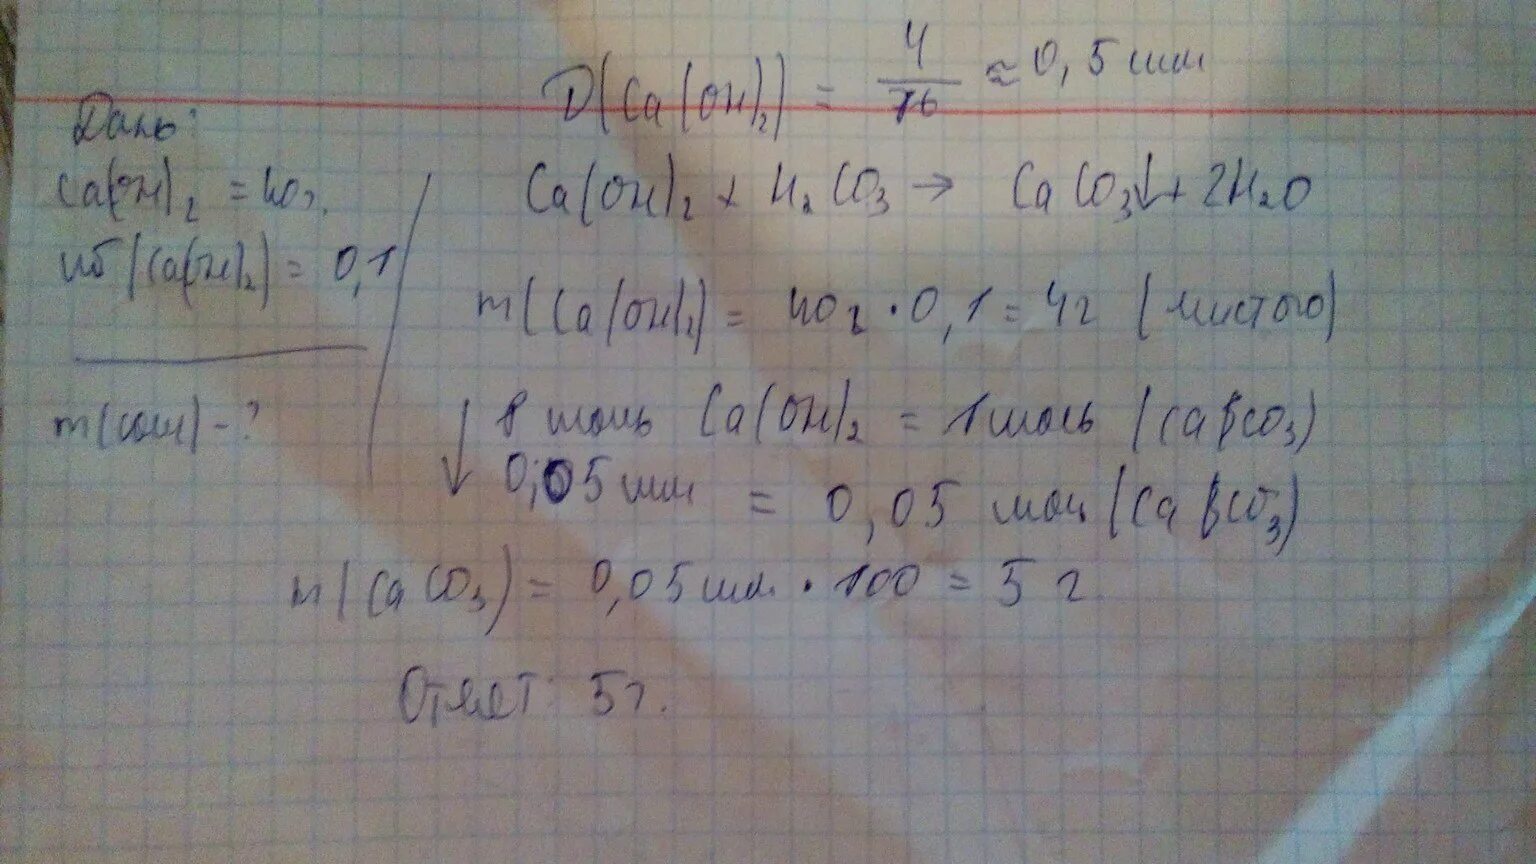 Дано:
Ca(OH)₂ = 40г.
ωб(Ca(OH)₂) = 0,1
m(соли) - ?
D(Ca(OH)₂) = 4/76 ≈ 0,5 мол
Ca(OH)₂ + H₂CO₃ → CaCO₃↓ + 2H₂O
m(Ca(OH)₂) = 40г · 0,1 = 4г (чистого)
↓ 1 моль Ca(OH)₂ = 1 моль (CaCO₃)
0,05 мол = 0,05 мол (CaCO₃)
m(CaCO₃) = 0,05 мол · 100 = 5 г
Ответ: 5г.